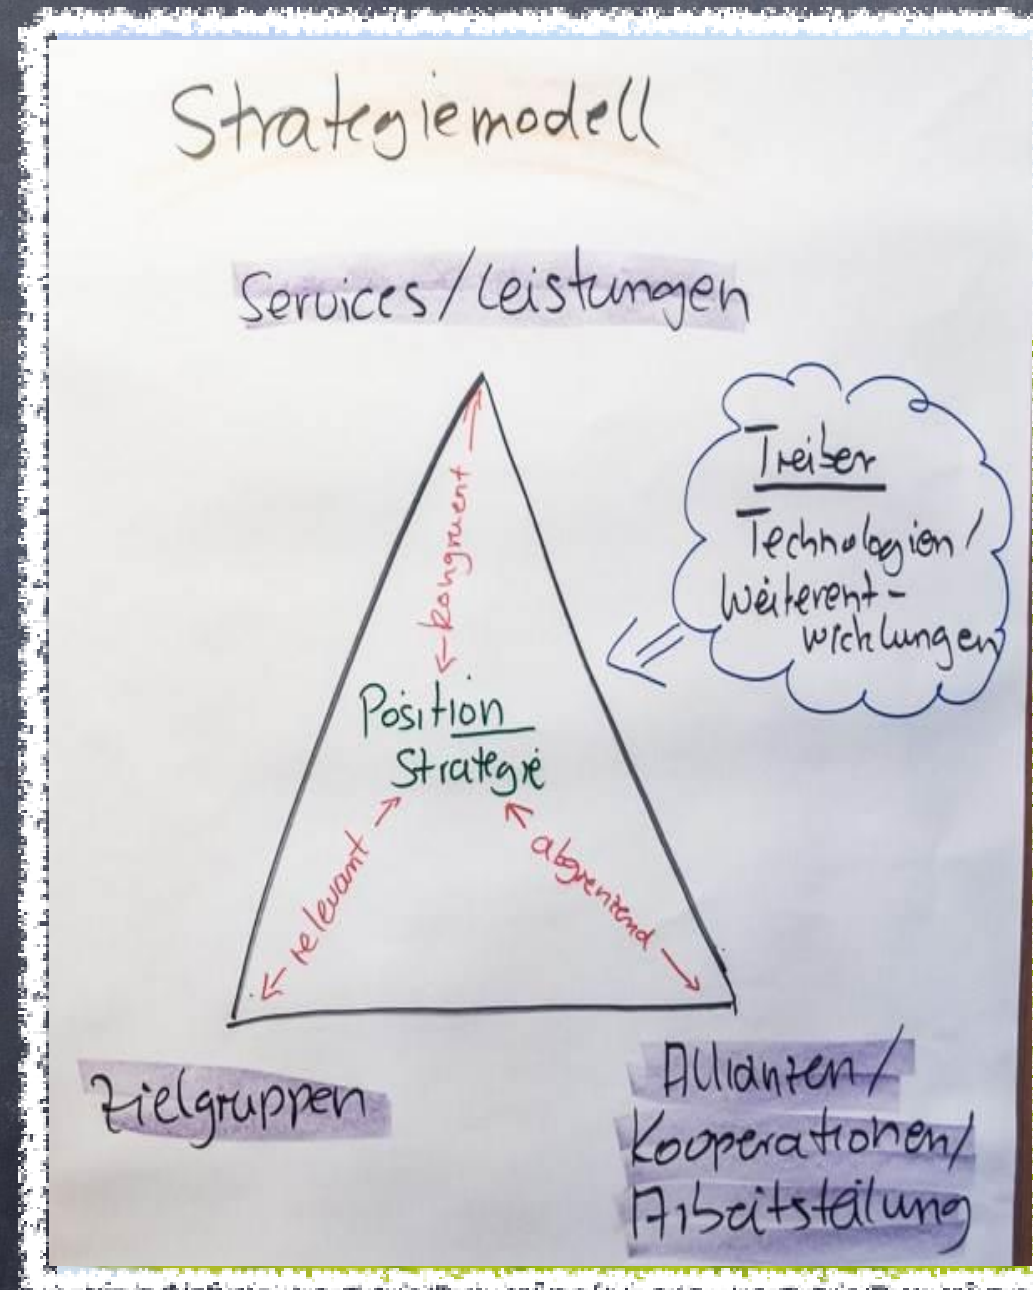 Strategiemodell
Services/Leistungen
Treiber
Technologien/
Weiterent-
wicklungen
kongruent
Position
Strategie
relevant
abgrenzend
Zielgruppen
Allianzen/
Kooperationen/
Arbeitsteilung